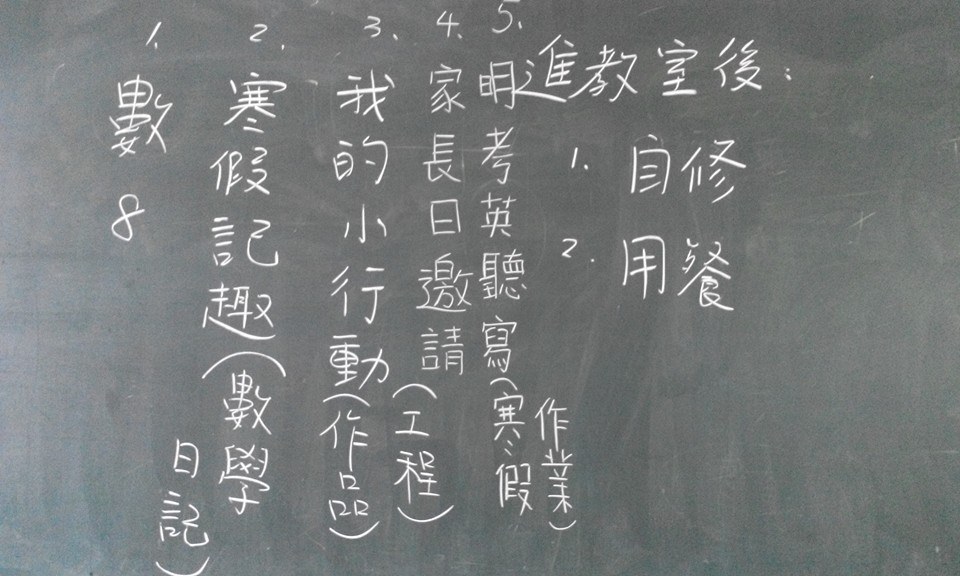 1.
數8
2.
寒假記趣(數學
日記)
3.
我的小行動(作品)
4.
家長日邀請
(工程)
5.
明考英聽寫(寒假
作業)
進教室後:
1. 自修
2. 用餐